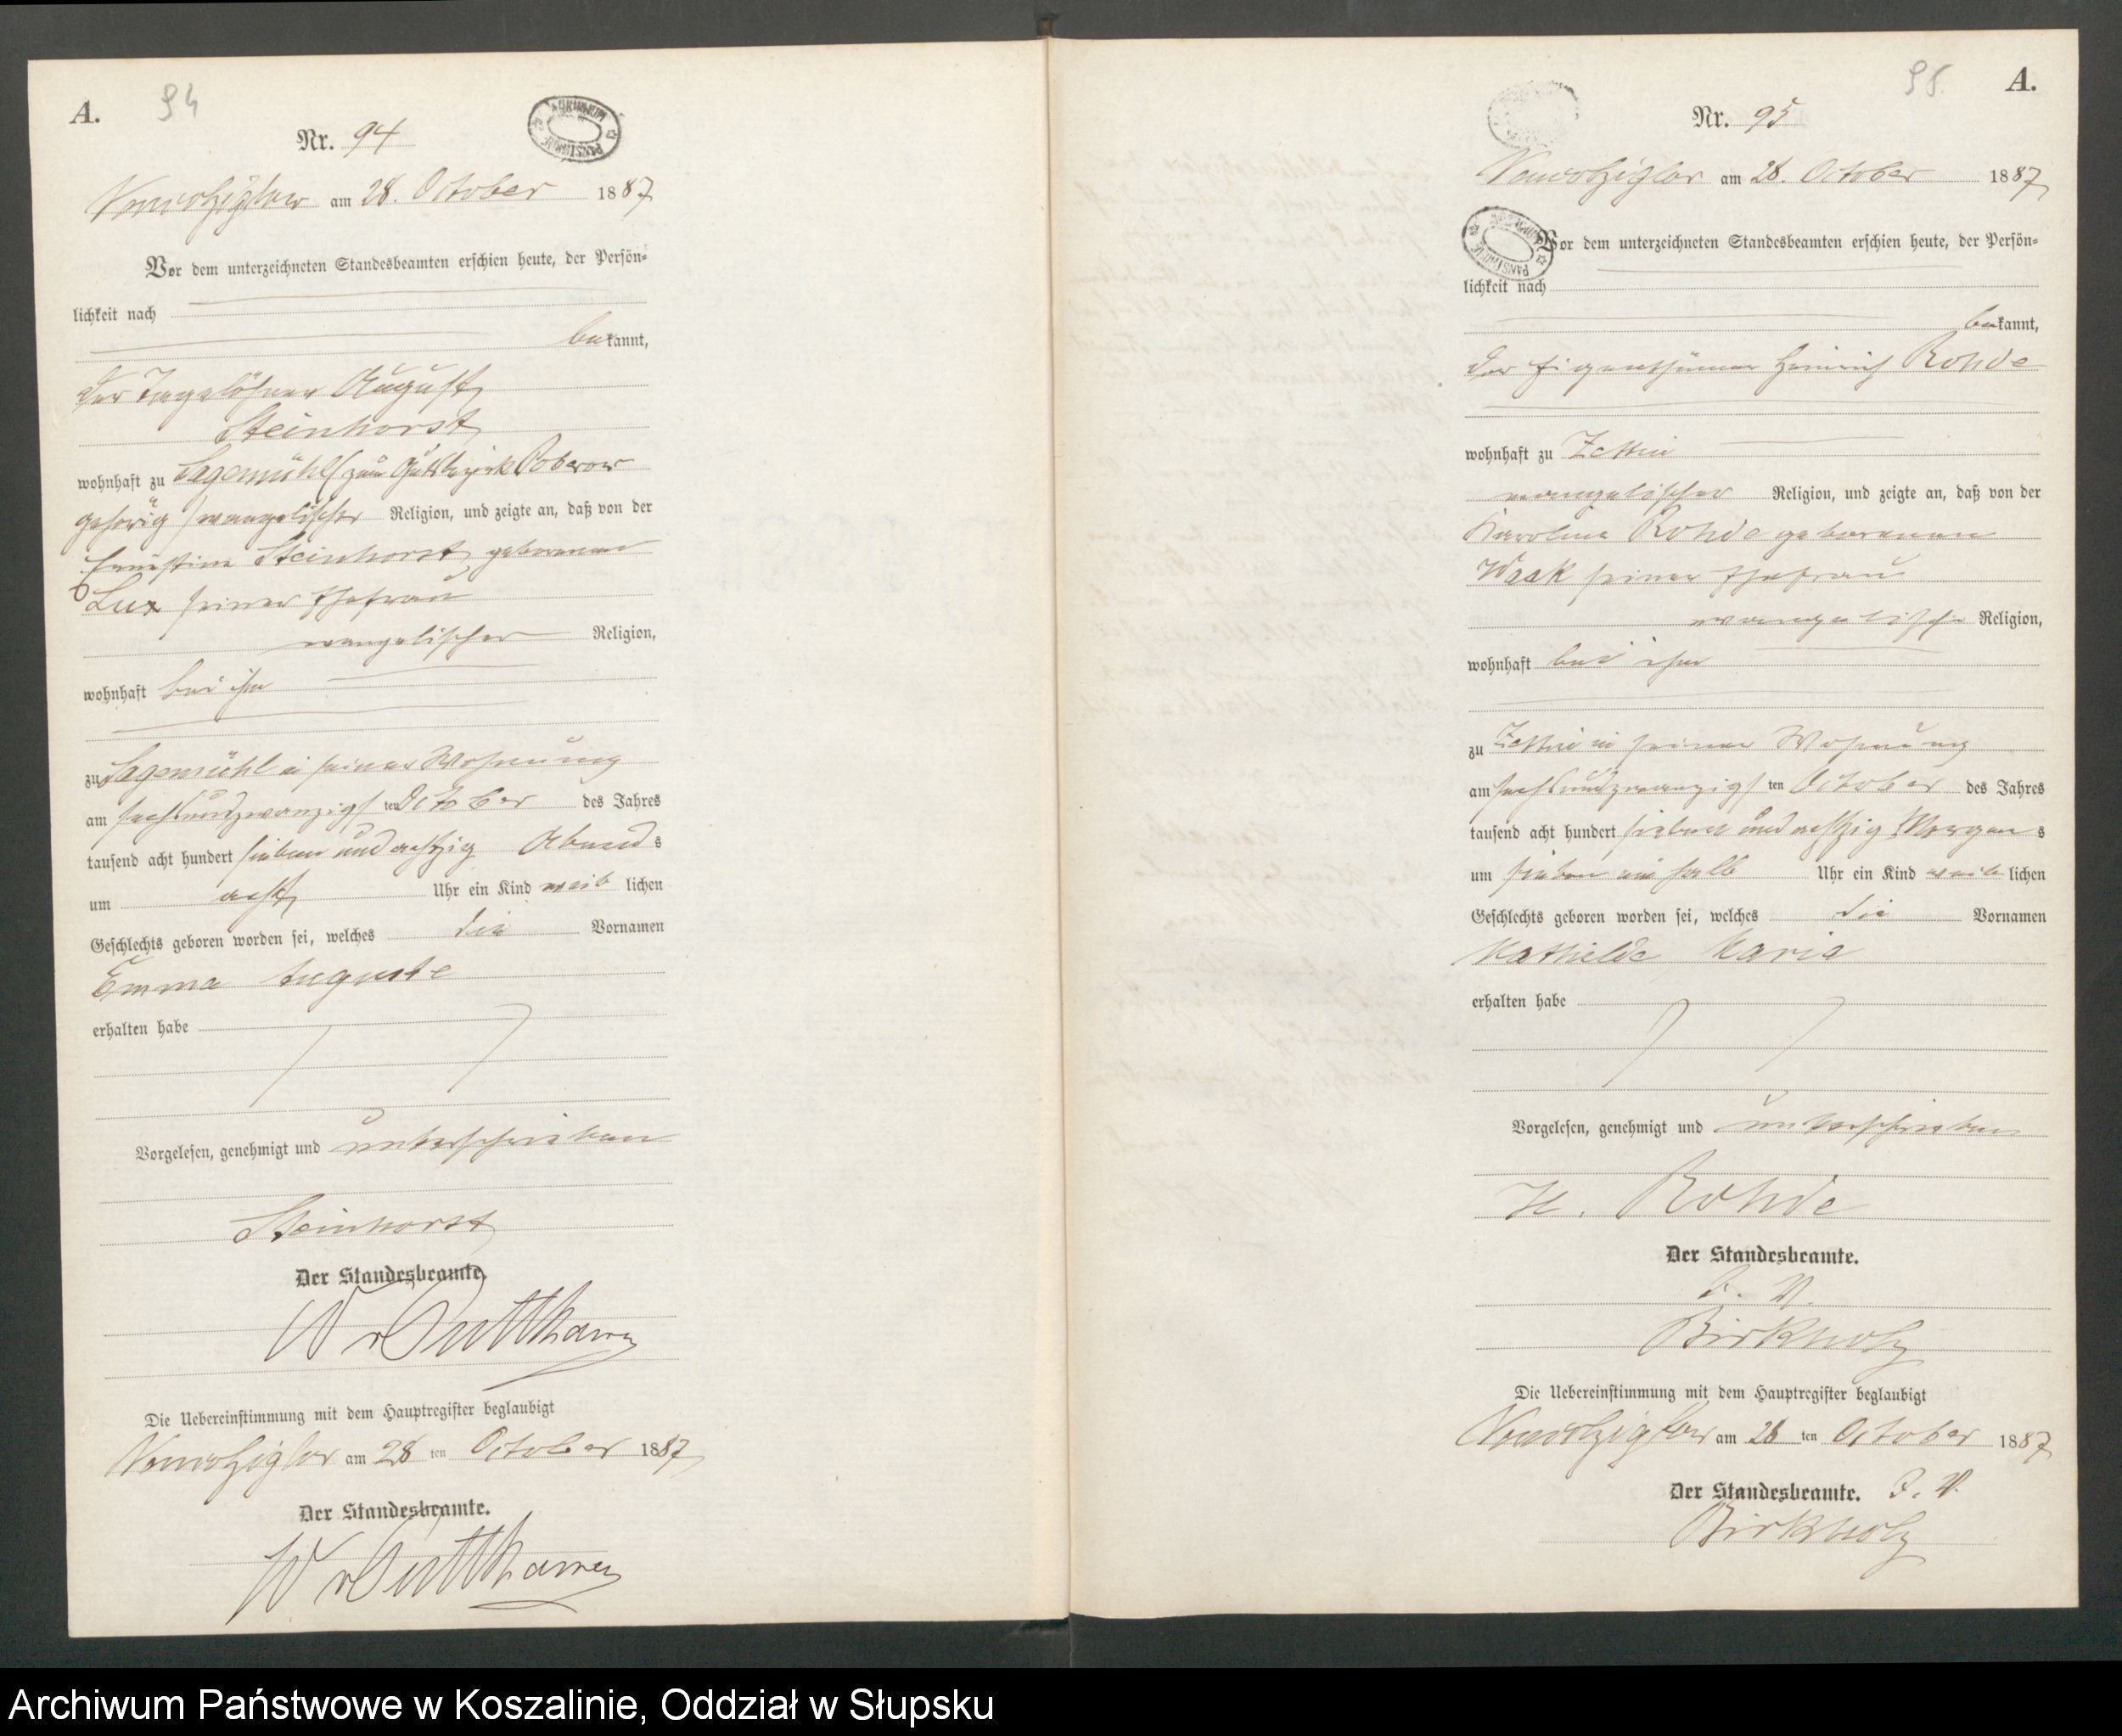 A. 94
Nr. 94
am 28. October 1887
Vor dem unterzeichneten Standesbeamten erschien heute, der Persön-
lichkeit nach
bekannt,
der Tagelöhner August
Steinhorst
wohnhaft zu Sagemühl (zum Gutsbezirk Poberow
gehörig) evangelischer Religion, und zeigte an, daß von der
Ernestine Steinhorst, geborenen
Lux seiner Ehefrau
evangelischer Religion,
wohnhaft bei ihm
zu Sagemühl in seiner Wohnung
am sechsundzwanzigsten October des Jahres
tausend acht hundert sieben und achtzig Abends
um acht Uhr ein Kind weiblichen
Geschlechts geboren worden sei, welches die Vornamen
Emma Auguste
erhalten habe
Vorgelesen, genehmigt und unterschrieben
Steinhorst
Der Standesbeamte.
W v Puttkamer
Die Uebereinstimmung mit dem Hauptregister beglaubigt
am 28 ten October 1887
Der Standesbeamte.
W v Puttkamer
95. A.
Nr. 95
am 28. October 1887
Vor dem unterzeichneten Standesbeamten erschien heute, der Persön-
lichkeit nach
bekannt,
der Eigenthümer Heinrich Rohde
wohnhaft zu Zettin
evangelischer Religion, und zeigte an, daß von der
Karoline Rohde geborenen
seiner Ehefrau
evangelischer Religion,
wohnhaft bei ihm
zu Zettin in seiner Wohnung
am sechsundzwanzigsten October des Jahres
tausend acht hundert sieben und achtzig Morgens
um sieben ein halb Uhr ein Kind weiblichen
Geschlechts geboren worden sei, welches die Vornamen
Mathilde Maria
erhalten habe
Vorgelesen, genehmigt und unterschrieben
H. Rohde
Der Standesbeamte.
I. V.
Birkholz
Die Uebereinstimmung mit dem Hauptregister beglaubigt
am 28 ten October 1887
Der Standesbeamte. I. V.
Birkholz
Archiwum Państwowe w Koszalinie, Oddział w Słupsku